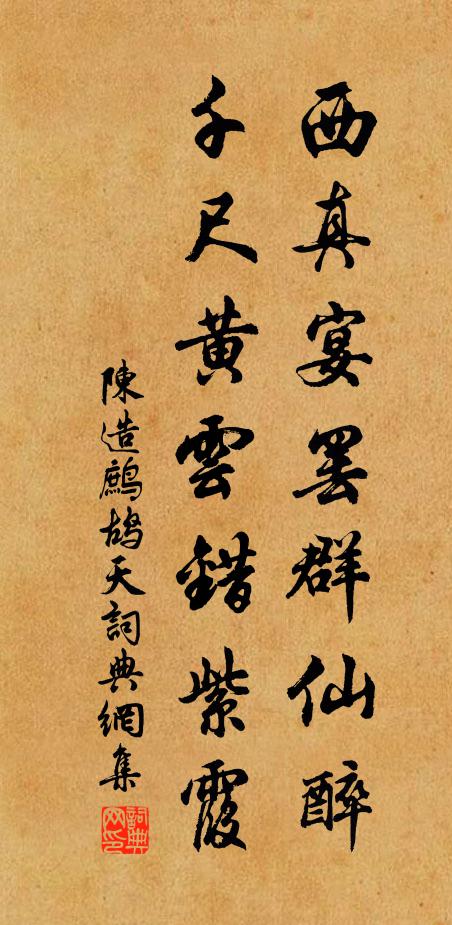 西真宴罷群仙醉
千尺黄雲錯紫霞
陳造鷓鴣天詞典網集
詞典网印